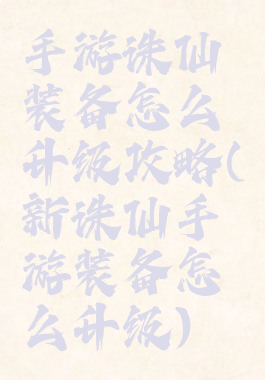 手游诛仙
装备怎么
升级攻略(
新诛仙手
游装备怎
么升级)